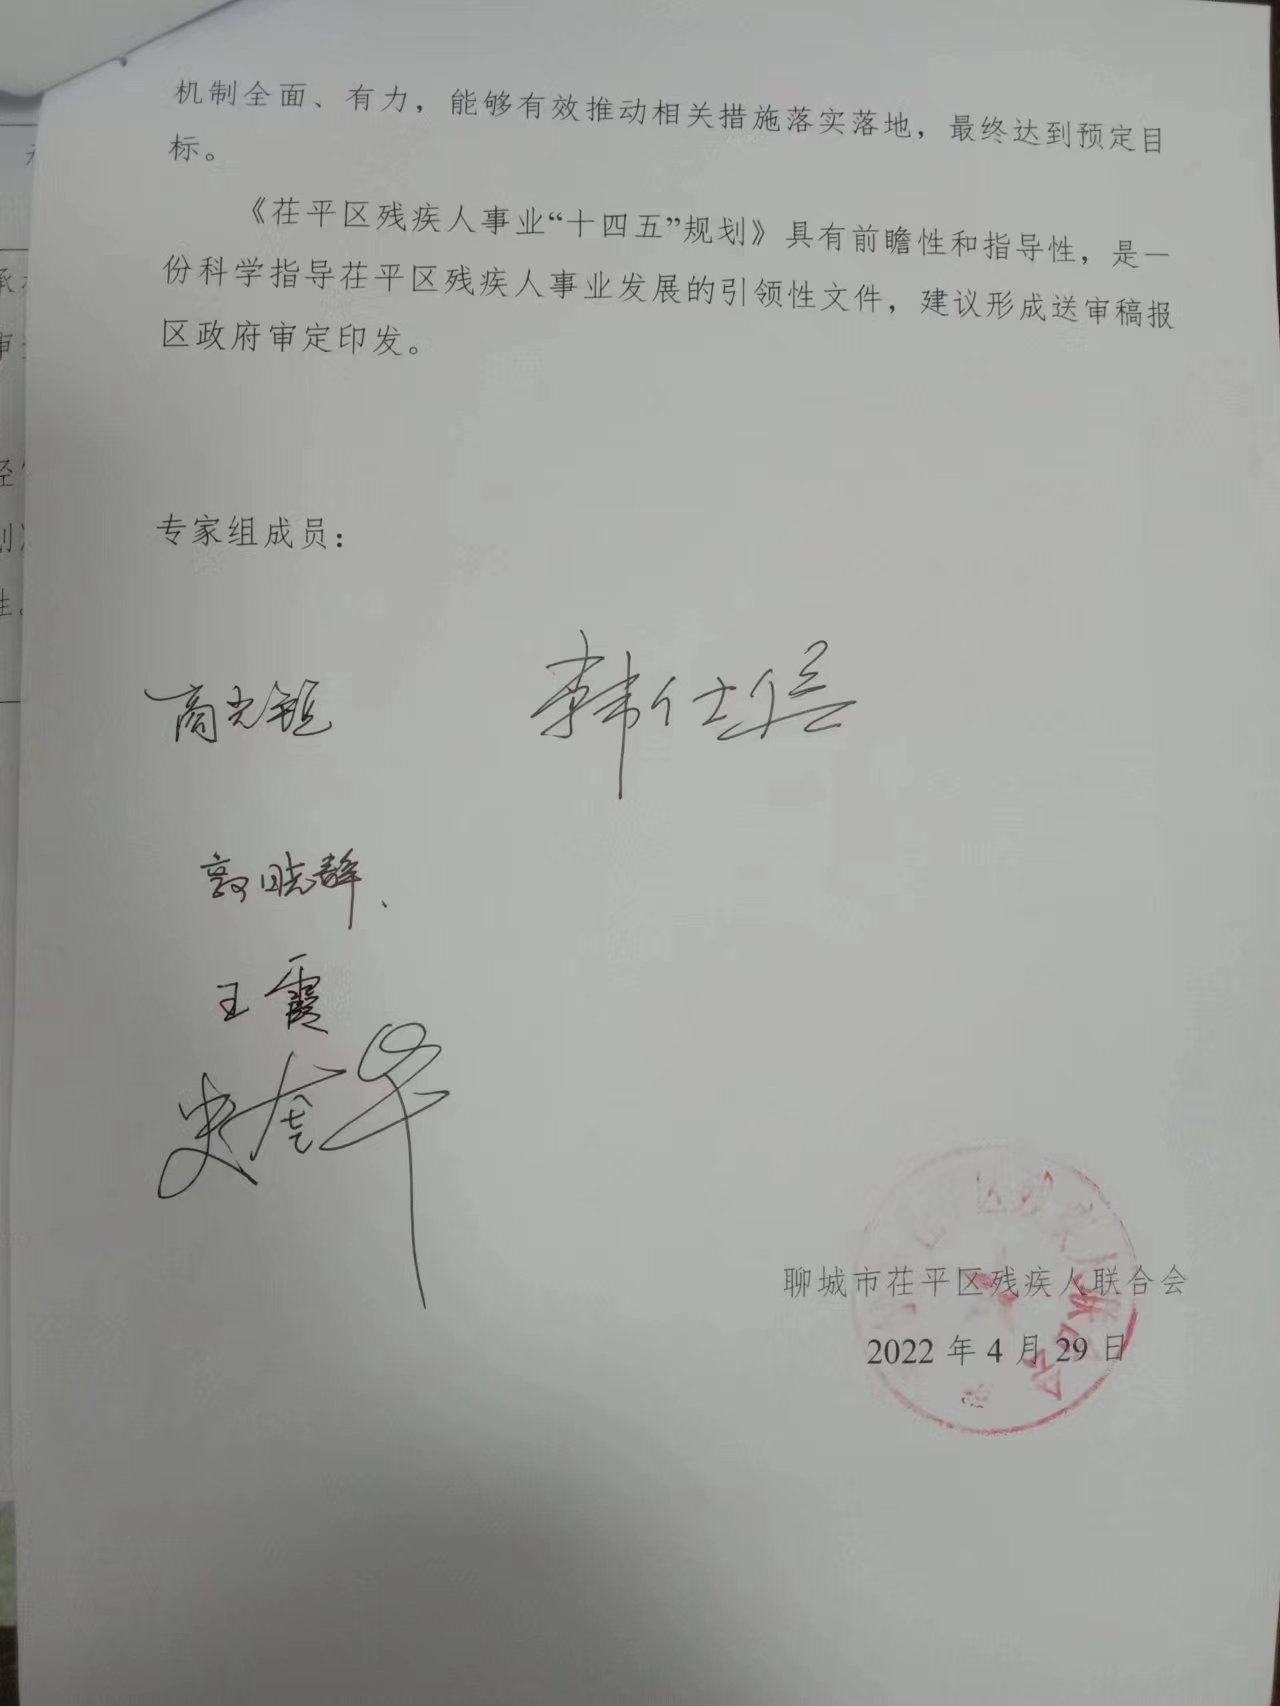 机制全面、有力，能够有效推动相关措施落实落地，最终达到预定目
标。
《茌平区残疾人事业“十四五”规划》具有前瞻性和指导性，是一
份科学指导茌平区残疾人事业发展的引领性文件，建议形成送审稿报
区政府审定印发。
专家组成员：
商光
韩仕
郭晓静
王霞
史
聊城市茌平区残疾人联合会
2022 年 4 月 29 日